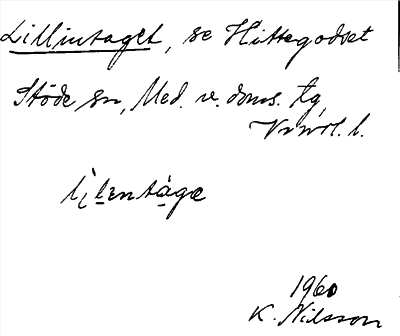 Lillintaget, se Hittegodset
Stöde sn, Med. v. doms. tg,
Vnrl. l.
lìlentàgœ
1960
K. Nilsson